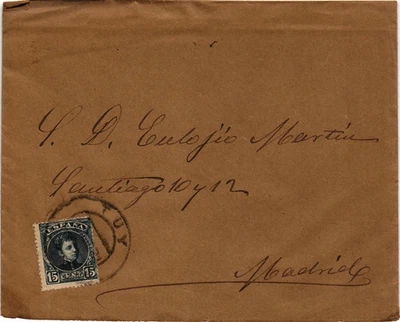 S. D. Eulojio Martin
Santiago 10 y 12
Madrid
TUY
ESPAÑA
15 CENT. 15